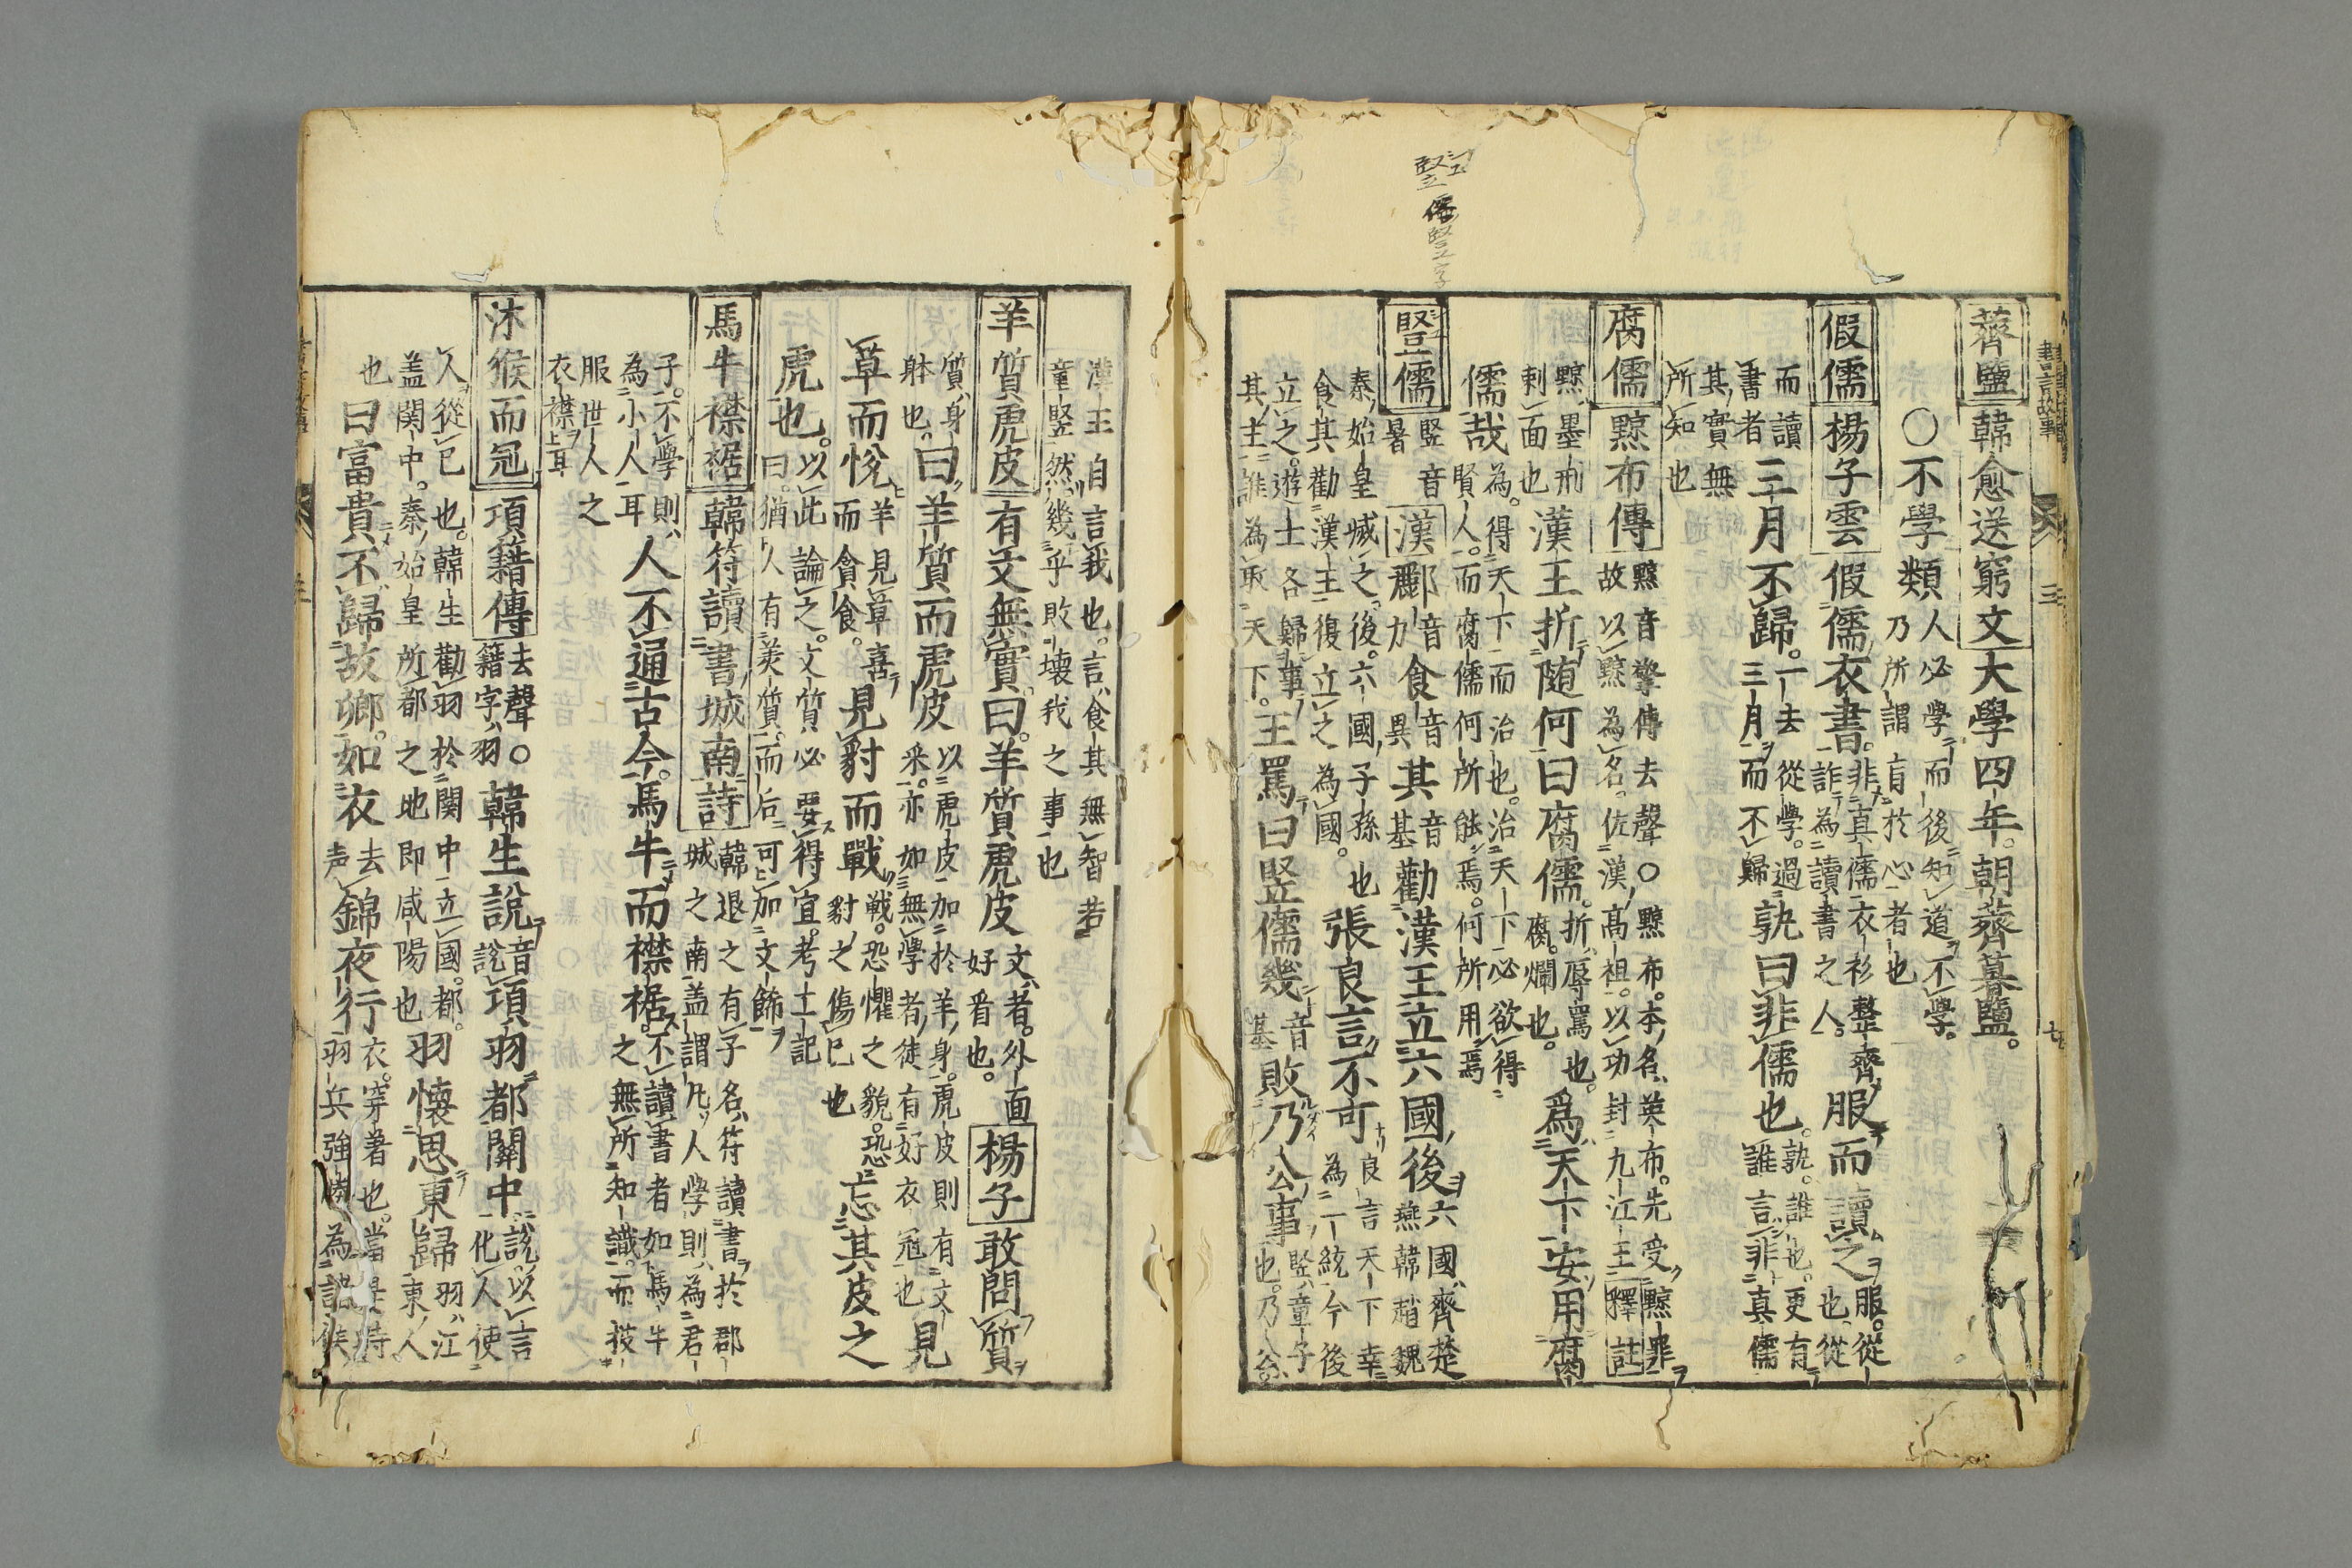 薺鹽 韓愈送窮文 大學四年。朝薺暮鹽。
〇不學類 人必學而後知道不學。
乃所謂盲於心者也
假儒 楊子雲 假儒衣書。非真儒衣衫整齊
詐為讀書之人。服而讀之 服。從
也。從
而讀
書者 三月不歸。一去從學。過
三月而不歸 孰曰非儒也。孰。誰也。更有
誰言非真儒
其實無
所知也
腐儒 黥布傳 黥音擎傳去聲〇黥布。本名英布。先受黥罪
故以黥為名。佐漢高祖。以功封九江王 釋註
黥墨刑
刺面也 漢王折随何曰腐儒。折辱罵也。
腐。爛也。 爲天下安用腐
儒哉 為。得天下而治也。治天下必欲得
賢人。而腐儒何所能焉。何所用焉
豎儒 豎音
暑 漢 酈音
力 食音
異 其音
基 勸漢王立六國後 六國。齊楚
燕韓趙魏
秦始皇滅之後。六國子孫也
食其勸漢王復立之為國。 張良言不可 良言天下幸
為一統今後
立之。遊士各歸事
其主誰為取天下。 王罵曰豎儒幾音
基 敗乃公事 豎童子
也。乃公
漢王自言我也。言食其無智若
童豎然幾乎敗壊我之事也
羊質虎皮 有文無實曰。羊質虎皮 文者。外面
好看也。 楊子 敢問質
質身
躰也。 曰羊質而虎皮 以虎皮加於羊身。虎皮則有文
采。亦如無學者徒有好衣冠也 見
草而悅 羊見草喜
而貪食。 見豺而戰 戰。恐懼之貌。恐
豺之傷已也 忘其皮之
虎也。以此論之。文質必要得宜。考士記
曰。猶人有美質。而后可加文飾
馬牛襟裾 韓符讀書城南詩 韓退之有子名符讀書於郡
城之南盖謂凡人學則為君
子。不學則
為小人耳 人不通古今。馬牛而襟裾。不讀書者如馬牛
之無所知識。而披
服世人之
衣襟耳
沐猴而冠 項籍傳 去聲〇
籍字羽 韓生說音
說 項羽都關中。說以言
化人使
人從已也。韓生勸羽於関中立國。都。
盖関中。秦始皇所都之地即咸陽也 羽懷思東歸 羽江
東人
也曰富貴不歸故鄉。如衣去
声 錦夜行 衣。穿著也。當是時
羽兵強勝為諸侯